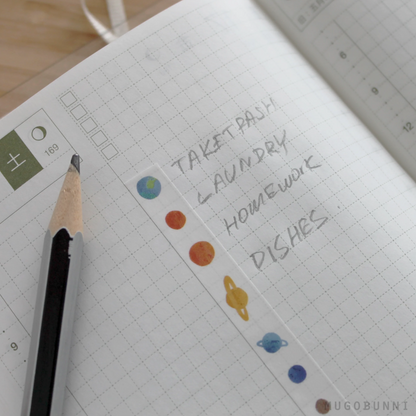 土
169
TAKETRASH
LAUNDRY
HOMEWORK
DISHES.
6
9
12
9
HUGOBUNNI